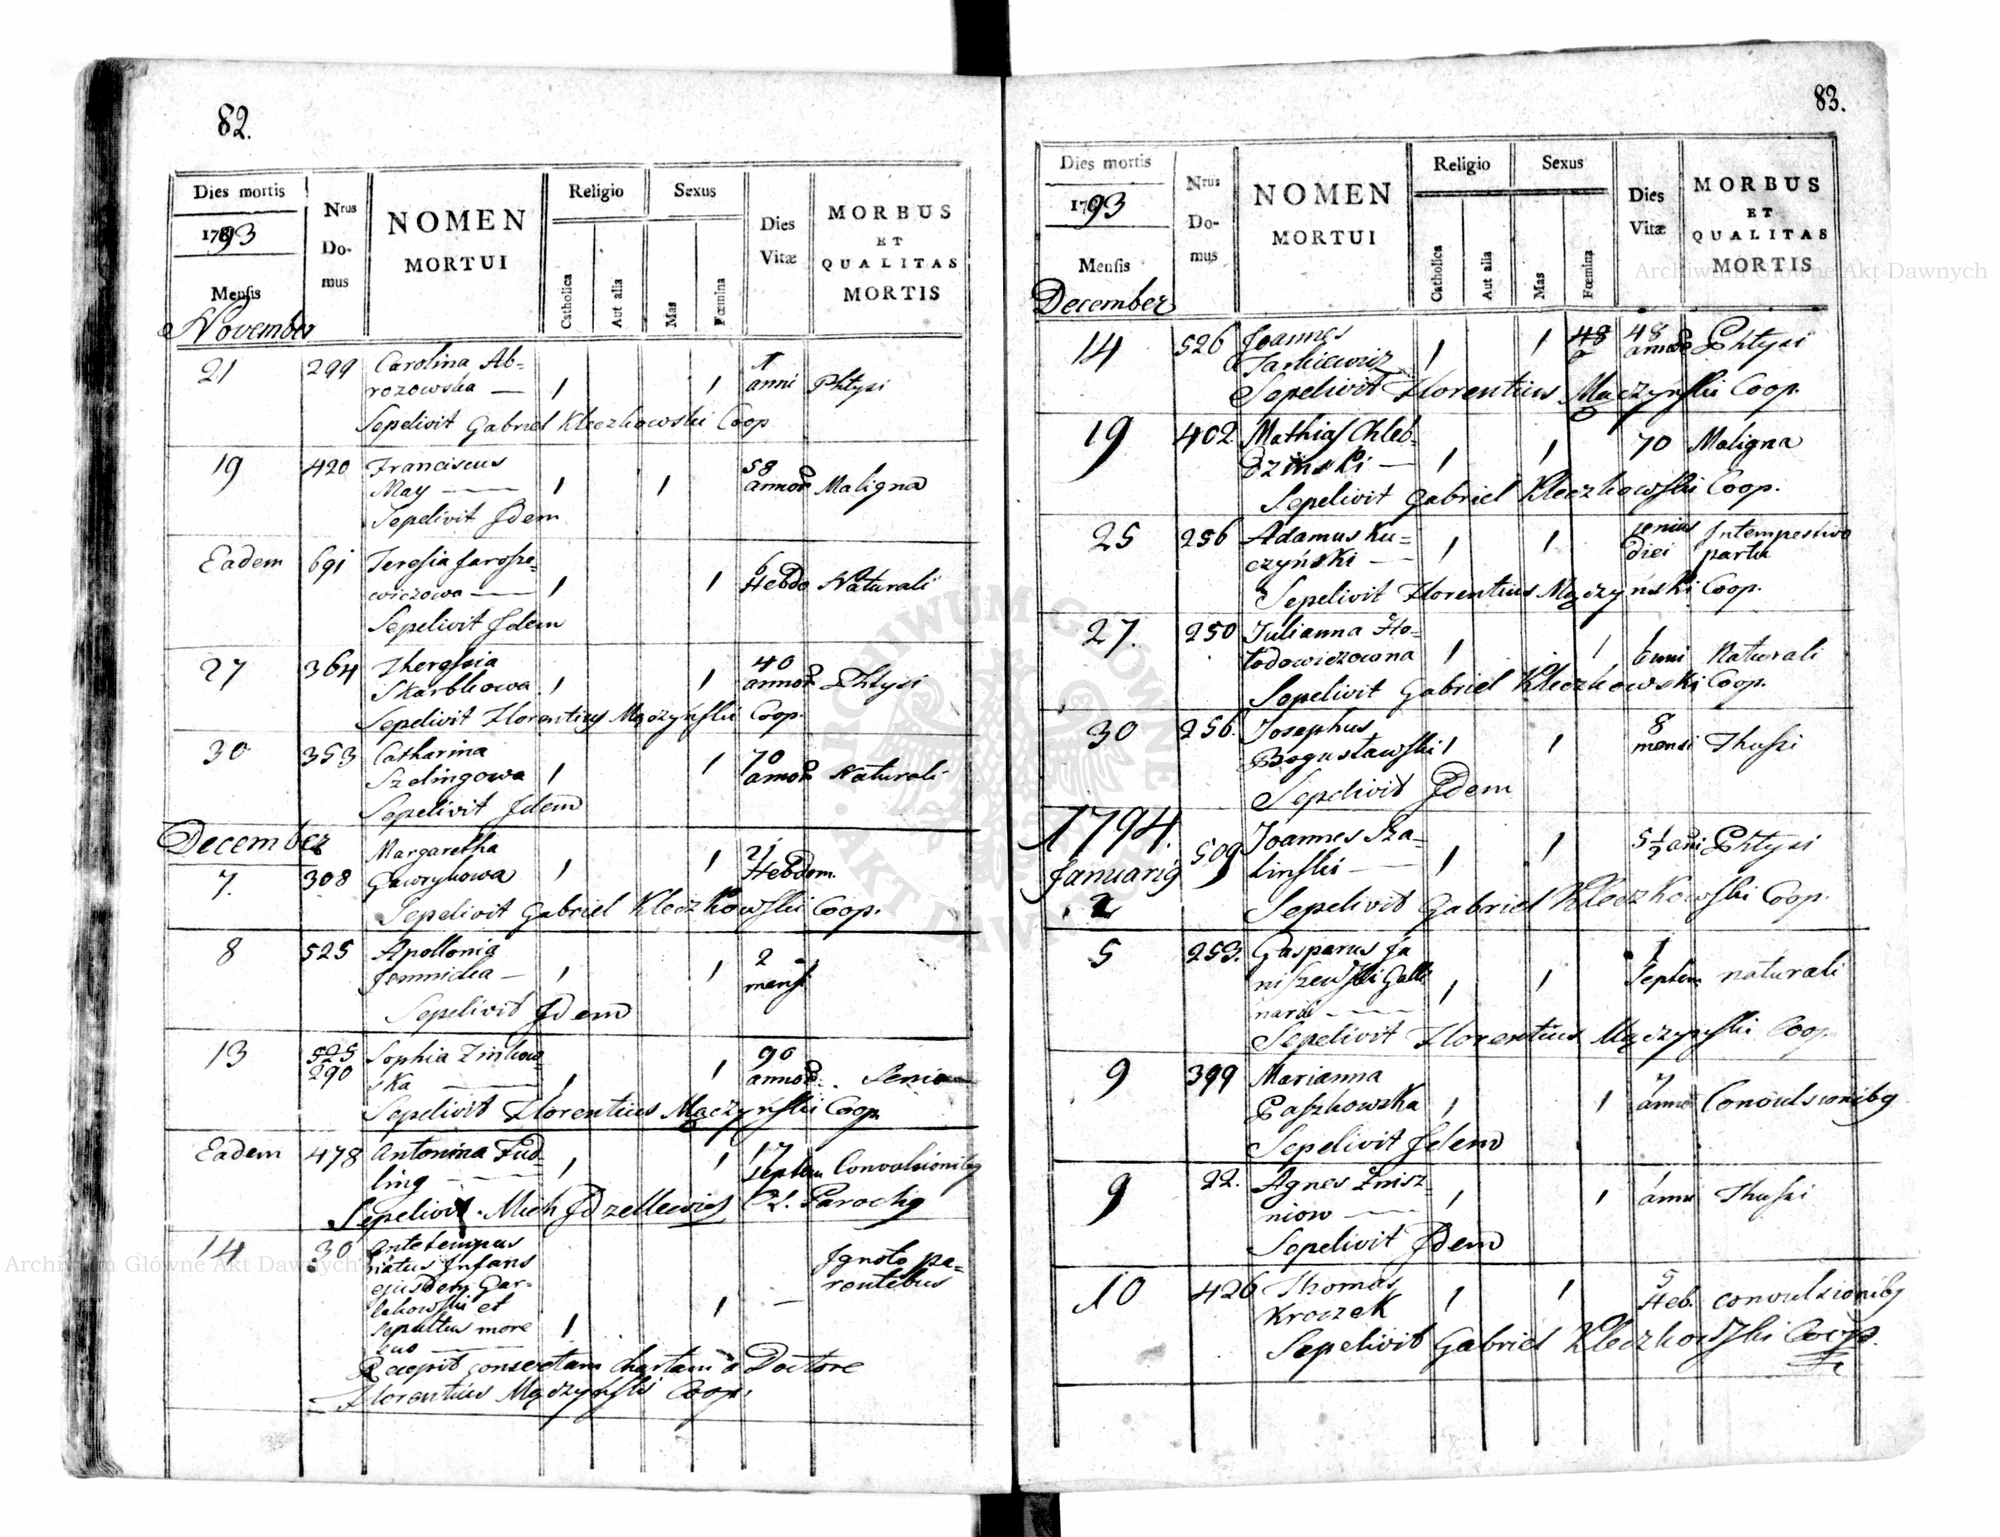 82.
Dies mortis
1793
Mensis
November
Nrus Do-mus
NOMEN MORTUI
Religio
Catholica
Aut alia
Sexus
Mas
Fœmina
Dies Vitæ
MORBUS ET QUALITAS MORTIS
21 299 Carolina Ab- 1 anni Phtysi
rozowska — 1 1
Sepelivit Gabriel Kleczkowski Coop
19 420 Franciscus 58 annor Maligna
May — 1 1
Sepelivit Idem
Eadem 691 Teresia Jarosze- 6 Hebdo Naturali
wiczowa — 1 1
Sepelivit Idem
27 364 40 annor Phtysi
Skarbkowa 1 1
Sepelivit Florentius Mączyński Coop.
30 353 Catharina 70 annor Naturali
Szelingowa 1 1
Sepelivit Idem
December
7. 308 Margaretha Hebdom.
Gawrykowa 1 1
Sepelivit Gabriel Kleczkowski Coop.
8 525 Apollonia 2 mensi
1 1
Sepelivit Idem
13 525 290 Sophia Zinkow- 90 annor. Senio
ska — 1 1
Sepelivit Florentius Mączyński Coop.
Eadem 478 Antonina Fud- 17 septem Convulsionibg
ling — 1 1
Sepelivit Mich Parochg
14 30 Ante tempus
natus Infans Ignoto pa-
ejusdem Gar- rentibus
lakowski et 1 —
sepultus more 1
suo —
Recepit consvetam chartam a Doctore
Florentius Mączyński Coop.
83.
Dies mortis
1793
Mensis
December
Nrus Do-mus
NOMEN MORTUI
Religio
Catholica
Aut alia
Sexus
Mas
Fœmina
Dies Vitæ
MORBUS ET QUALITAS MORTIS
14 526 Joannes 48 48 annor Phtysi
Jankiewicz 1 1
Sepelivit Florentius Mączyński Coop.
19 402 Mathias Chleb- 70 Maligna
dzinski — 1 1
Sepelivit Gabriel Kleczkowski Coop.
25 256 Adamus Ku- unius diei Intempestivo
czyński — 1 1 partu
Sepelivit Florentius Mączyński Coop.
27. 250 Julianna Ho- 1 anni Naturali
lodowiczowna 1 1
Sepelivit Gabriel Kleczkowski Coop.
30 256. Josephus 8 mensi Thussi
Bogusławski 1 1
Sepelivit Idem
1794.
Januarig
2 509 Joannes Sza- 5 1/2 ani Phtysi
linski — 1 1
Sepelivit Gabriel Kleczkowski Coop.
5 253. Gasparus Ja 1 septem naturali
niszewski 1 1
Sepelivit Florentius Mączyński Coop.
9 399 Marianna anno Convulsionibg
Paszkowska 1 1
Sepelivit Idem
9 22. Agnes Znisz- anni Thussi
niow — 1 1
Sepelivit Idem
10 426 Thomas 5 Heb. convulsionibg
Kroczek 1 1
Sepelivit Gabriel Kleczkowski Coop.
Archiwum Główne Akt Dawnych
Archiwum Główne Akt Dawnych
ARCHIWUM GŁÓWNE AKT DAWNYCH